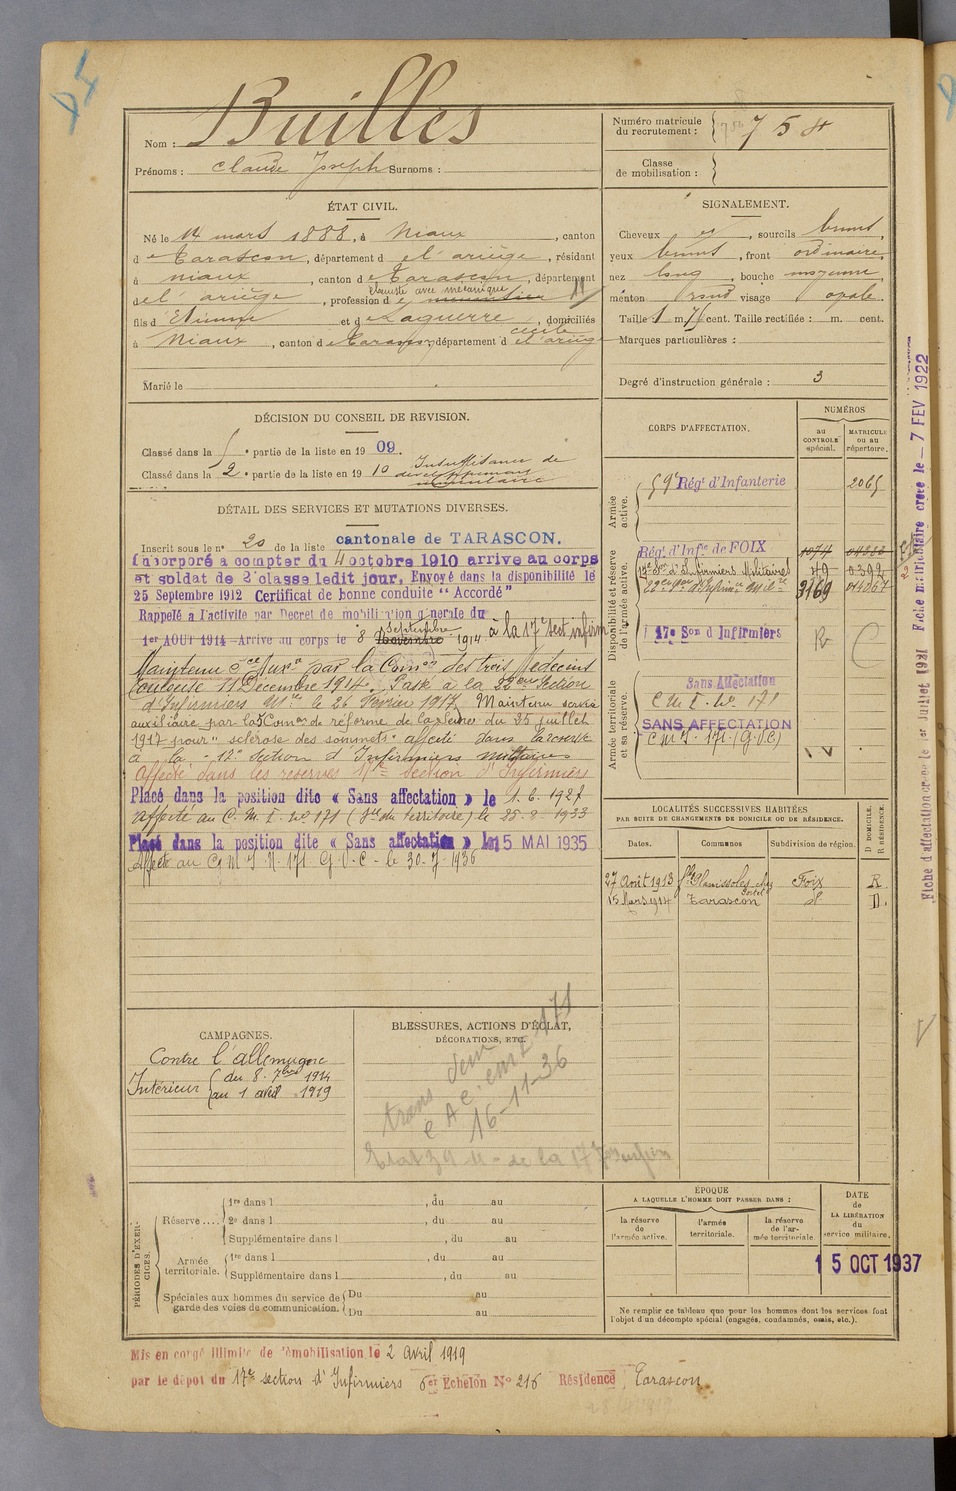 Nom : Builles
Prénoms : Claude Joseph Surnoms :
Numéro matricule
du recrutement : 754
Classe
de mobilisation :
ÉTAT CIVIL.
Né le 14 mars 1888, à Niaux, canton
d e Tarascon, département d e l'ariège, résidant
à niaux, canton d e Tarascon, département
d e l'ariège, profession d e
fils d'Etienne et d e Laguerre cécile, domiciliés
à Niaux, canton d e Tarascon, département d e l'ariège
Marié le
SIGNALEMENT.
Cheveux et, sourcils bruns,
yeux bruns, front ordinaire,
nez long, bouche moyenne,
menton rond visage ovale.
Taille 1 m 71 cent. Taille rectifiée : m. cent.
Marques particulières :
Degré d'instruction générale : 3
DÉCISION DU CONSEIL DE REVISION.
Classé dans la 5e partie de la liste en 1909.
Classé dans la 2e partie de la liste en 1910 Insuffisance de
développement
DÉTAIL DES SERVICES ET MUTATIONS DIVERSES.
Inscrit sous le n° 20 de la liste cantonale de TARASCON.
Incorporé à compter du 4 octobre 1910 arrive au corps
et soldat de 2e classe ledit jour. Envoyé dans la disponibilité le
25 Septembre 1912 Certificat de bonne conduite "Accordé"
Rappelé à l'activité par Decret de mobilisation générale du
1er AOUT 1914 Arrive au corps le 8 Septembre 1914 à la 17e sect infirm
Maintenu Sce Auxre par la Comon des trois Médecins
Toulouse 11 Decembre 1914. Passé à la 22eme Section
d'Infirmiers Mres le 26 Fevrier 1917. Maintenu service
auxiliaire par la Comon de réforme de du 25 juillet
1917 pour "sclérose des sommets" affecté dans la réserve
à la 12e Section d'Infirmiers militaires
Affecté dans les réserves 17e Section d'Infirmiers
Placé dans la position dite « Sans affectation » le 1.6.1927
affecté au C. M. I. n° 171 (Gde du territoire) le 25-8-1933
Placé dans la position dite « Sans affectation » le 15 MAI 1935
Affecté au C M I N° 171 G.V.C. le 30-7-1936
CORPS D'AFFECTATION.
NUMÉROS
au
CONTROLE
spécial.
MATRICULE
ou au
répertoire.
Armée
active.
59e Régt d'Infanterie 2065
Disponibilité et réserve
de l'armée active.
Régt d'Infie de FOIX 1074
12e Son d'Infirmiers Militaires 49 0392
22eme Son d'Infirm Mil 3169
17e Son d Infirmiers
Armée territoriale
et sa réserve.
Sans Affectation
C M I. N° 171
SANS AFFECTATION
C M I - 171 (G.V.C)
Fiche d'affectation créée le 1er Juillet 1921 Fiche matriculaire créée le - 7 FEV 1922
LOCALITÉS SUCCESSIVES HABITÉES
PAR SUITE DE CHANGEMENTS DE DOMICILE OU DE RÉSIDENCE.
Dates. Communes Subdivision de région.
D DOMICILE.
R RÉSIDENCE.
27 Août 1913 Foix R
15 Mars 1914 Tarascon d° D.
CAMPAGNES.
Contre l'allemagne
Intérieur du 8. 7bre 1914
au 1 avril 1919
BLESSURES, ACTIONS D'ÉCLAT,
DÉCORATIONS, ETC.
16-11-36
PÉRIODES D'EXERCICES.
Réserve.... 1re dans l , du au
2e dans l , du au
Supplémentaire dans l , du au
Armée
territoriale. 1re dans l , du au
Supplémentaire dans l , du au
Spéciales aux hommes du service de
garde des voies de communication. Du au
Du au
ÉPOQUE
A LAQUELLE L'HOMME DOIT PASSER DANS :
la réserve
de
l'armée active.
l'armée
territoriale.
la réserve
de l'ar-
mée territoriale.
DATE
de
LA LIBÉRATION
du
service militaire.
15 OCT 1937
Ne remplir ce tableau que pour les hommes dont les services font
l'objet d'un décompte spécial (engagés, condamnés, omis, etc.).
Mis en congé illimité de démobilisation le 2 avril 1919
par le dépôt du 17e section d'Infirmiers 6er Echelon N° 216 Résidence Tarascon